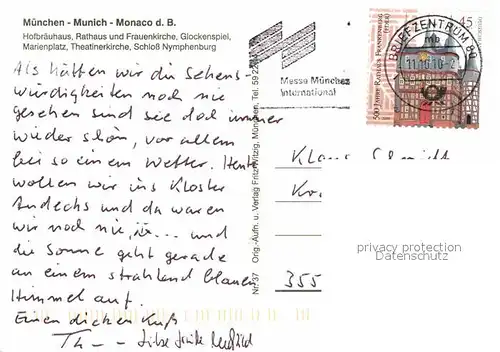 München - Munich - Monaco d. B.
Hofbräuhaus, Rathaus und Frauenkirche, Glockenspiel,
Marienplatz, Theatinerkirche, Schloß Nymphenburg
Als hätten wir die Sehens-
würdigkeiten noch nie
gesehen sind sie doch immer
wieder schön, vor allem
bei so einem Wetter. Heute
wollen wir ins Kloster
Andechs und da waren
wir noch nie, ... und
die Sonne geht gerade
an einem strahlend blauen
Himmel auf.
Einen dicken Kuß
Nr. 37 Orig.-Aufn. u. Verlag Fritz Witzig, München, Tel. 59 22
Messe München
International
BRIEFZENTRUM 80
mb
11.10.10-2
45
500 Jahre Rathaus Frankenberg
(Eder)
Klaus Schmidt
355
privacy protection
Datenschutz